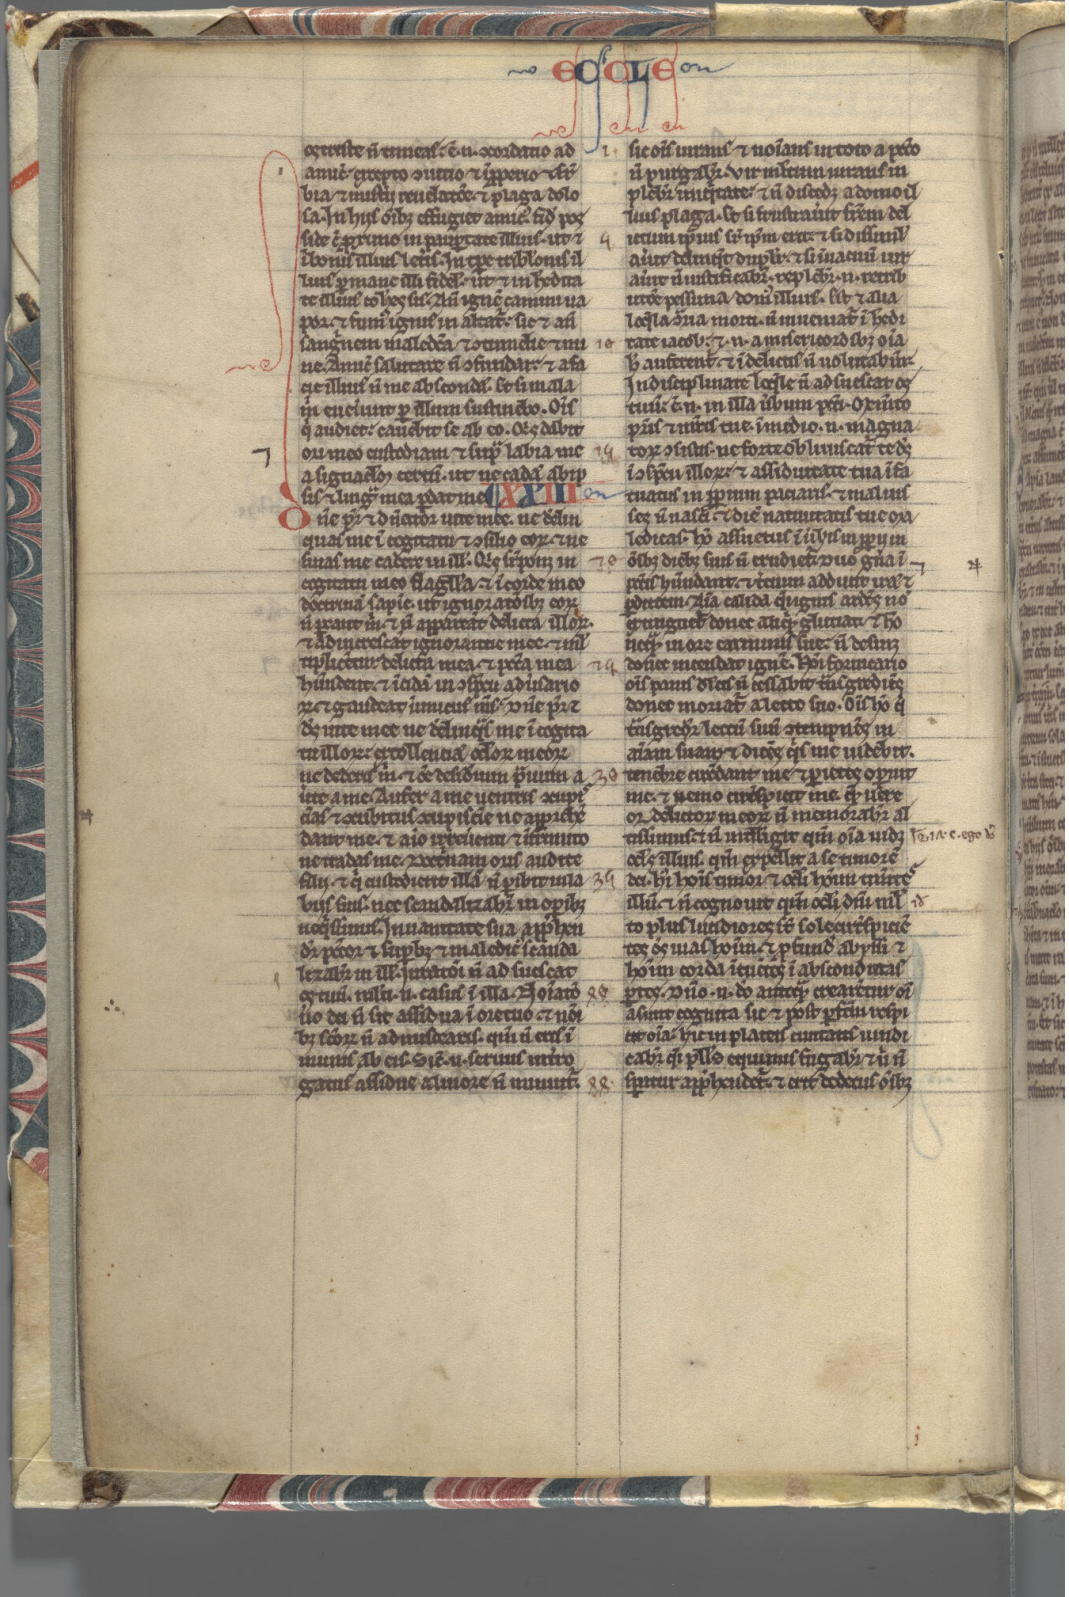 ECCLE
os triste ñ timeas. ē. n. ↄcordatio ad
amicū. excepto ↄuitio ⁊ īproperio ⁊ sup̄
bia ⁊ misterii reuelatōe. ⁊ plaga dolo
sa. In hiis oībꝫ effugiet amic᷒. fidē pos
side cū proximo in paupertate illius. ut ⁊
ī bonis illius leteris. In tꝑe tribulōnis il
lius ꝑmane illi fidel. ut ⁊ in hedita
te illius coheres sis. Añ ignē camini ua
por. ⁊ fum᷒ ignis in altat᷑. sic ⁊ añ
sanguinem maledcā. ⁊ ↄtumelie ⁊ mi
ne. Amicū salutare ñ ↄfundar. ⁊ a fa
cie illius ñ me abscondā. ⁊ si mala
m̄ euenerint ꝑ illum sustinebo. Oīs
q̇ audiet: cauebit se ab eo. Qis dabit
ori meo custodiam ⁊ sup̄ labia me
a signaclm̄ certū. ut ne cadā ab ip
sis ⁊ lingua mea ꝑdat me XXIII
Dn̄e pr̄ ⁊ dn̄ator uite mee. ne derelin
quas me ī cogitatu ⁊ ↄsilio eorꝝ. ⁊ ne
sinas me cadere in ill. Qis sup̄ponit in
cogitatu meo flagella. ⁊ ī corde meo
doctrinā sapīe. ut ignoratōibꝫ eorꝝ
ñ parcant m̄. ⁊ ñ appareat delicta illorꝝ.
⁊ adincrescat ignorantie mee. ⁊ ml
tiplicētur delicta mea. ⁊ pctā mea
habundent. ⁊ īcidā in ↄspctu aduersario
rꝝ ⁊ gaudeat inimicus m̄s. Dn̄e pr̄ ⁊
ds̄ uite mee ne derelinqͣs me ī cogita
tu illorꝝ. extollenciā oclorꝝ meorꝝ
ne dederis m̄. ⁊ oē desideriuim
a me. Aufer a me uentris ↄcupi
cias ⁊ ↄcubitus ↄcupiscīe ne apprehē
dant me. ⁊ aīo irreuenti ⁊ infrunito
ne tradas me. Doctrinam oris audite
filii. ⁊ q̇ custodierit illā ñ ꝑibit in la
biis suis. nec scandalizabr̄ in oꝑibꝫ
neqͥssimis. In uanitate sua appͣhen
dr̄ pctor ⁊ supbꝫ ⁊ maledic᷒ scanda
lizabr̄ in ill. Iuratōi ñ adsuescat
os tuū. mlti. n. casus ī illa. Noīatō
u̇o dei ñ sit assidua ī ore tuo. ⁊ noī
bꝫ sc̄orꝝ ñ admiscearis. qm̄ ñ eris ī
munis ab eis. Sic᷑. n. seruus intro
gatus assidue a liuore ñ minuit᷑.
1
5
10
15
20
25
30
35
sic oīs iurans ⁊ noīans in toto a pctō
ñ purgabr̄. Vir multum iurans im
plebr̄ iniqͥtate. ⁊ ñ discedꝫ a domo il
lius plaga. ⁊ si frustrauit fr̄em del
ictum ip̄ius sr̄ ip̄m erit. ⁊ si dissimul
auit delinqͥt duplr̄. ⁊ si in uacuū iur
auit ñ iustificabr̄. replebr̄. n. retrib
utōe pessima dom᷒ illius. Est ⁊ alia
loqͣla ↄtͣria morti. ñ inueniat᷑ ī hedi
tate iacob. ⁊. n. a misericordibꝫ oīa
h̄ auferent᷑. ⁊ ī delictis ñ uolutabunt᷑.
Indisciplinate loqͣle ñ adsuescat os
tuū. ē. n. in illa ūbum pcti. Memto
pr̄is ⁊ matris tue. ī medio. n. magna
torꝝ ↄsistis. ne forte obliuiscat᷑ te ds̄
ī ↄspctu illorꝝ. ⁊ assiduitate tua ī fa
tuatus in properium paciaris. ⁊ maluis
ses ñ nasci. ⁊ diē natiuitatis tue ma
ledicas. Hō assuetus ī ūbis improperii in
oībꝫ diebꝫ suis ñ erudiet᷑. Duo gn̄a ī
pctis habundant. ⁊ tcium adducit iram ⁊
ꝑditōem. Aīa calida qͣi ignis ardēs nō
extinguet᷑ donec aliqͥd glutiat. ⁊ hō
neqͣ in ore carnis sue. ñ desinꝫ
donec incendat ignē. Hoī fornicario
oīs panis dulcis ñ cessabit tͣnsgrediēs
donec moriat᷑ a lecto suo. Oīs hō q̇
tͣnsgredr̄ lectū suū ↄtempnēs in
aīam suam ⁊ dicēs q̇s me uidebit.
tenebre circūdant me ⁊ parietes operiunt
me. ⁊ nemo circūspicit me. quem uere
or delictorꝝ meorꝝ ñ memorabr̄ al
tissimus. ⁊ ñ intelligit qm̄ oīa uidꝫ
ocls illius. qm̄ expellit a se timorē
dei. hī hoīs timor ⁊ ocli hoīm timētes
illū. ⁊ ñ cognouit qm̄ ocli dn̄i ml
to plus lucidiores st̄ sole circūspiciē
tes oēs uias hoīm. ⁊ ꝑfundū abyssi ⁊
hoīm corda ītuētes ī absconditas
ꝑtes. Dn̄o. n. do anteqͣ crearentur oīa
assunt cognita sic ⁊ post pr̄fctm respi
cit oīa. hic in plateis ciuitatis uindi
cabr̄. qͥ pulls equinus fugabr̄ ⁊ ubi ñ
sperauit appͣhendet᷑. ⁊ erit dedecus oībꝫ